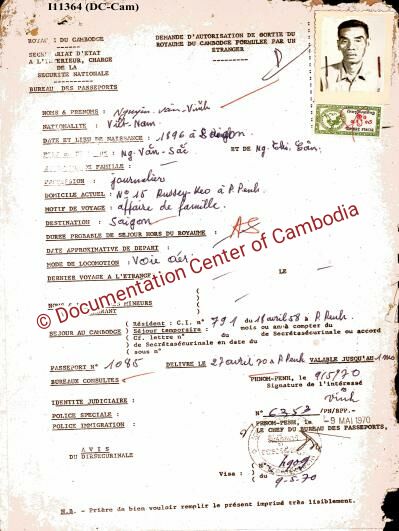 I11364 (DC-Cam)
ROYAUME DU CAMBODGE
SECRETARIAT D'ETAT
A L'INTERIEUR, CHARGE
DE LA
SECURITE NATIONALE
BUREAU DES PASSEPORTS
DEMANDE D'AUTORISATION DE SORTIE DU
ROYAUME DU CAMBODGE FORMULEE PAR UN
ETRANGER
NOMS & PRENOMS : Nguyễn văn Vinh
NATIONALITE : Việt-Nam
DATE ET LIEU DE NAISSANCE : 1896 à Saigon
Ng. Văn Sắc ET DE Ng. Thị
FAMILLE : —
PROFESSION : journalier
DOMICILE ACTUEL : No 15 Russey-Keo à P. Penh
MOTIF DE VOYAGE : affaire de famille
DESTINATION : Saigon
DUREE PROBABLE DE SEJOUR HORS DU ROYAUME :
DATE APPROXIMATIVE DE DEPART :
MODE DE LOCOMOTION : Voie aér.
DERNIER VOYAGE A L'ETRANGER LE —
MINEURS
© Documentation Center of Cambodia
SEJOUR AU CAMBODGE ( Résident : C.I. n° 791 du 18 avril 58 à P. Penh
( Séjour temporaire : mois ou an à compter du
( Cf. lettre n° du de Secrétaséurinale ou accord
( de Secrétaséurinale en date du
( sous n°
PASSEPORT N° 1085 DELIVRE LE 27 avril 70 à P. Penh VALABLE JUSQU'AU 1 mo
BUREAUX CONSULTES
PHNOM-PENH, le 9/5/70
Signature de l'intéressé
Vinh
IDENTITE JUDICIAIRE :
POLICE SPECIALE :
POLICE IMMIGRATION :
N° 6252 /PH/BPP.-
PHNOM-PENH, le - 9 MAI 1970
LE CHEF DU BUREAU DES PASSEPORTS,
AVIS
DU DIRSECURINALE
Visa :
N°
du 9-5-70
N.B. - Prière de bien vouloir remplir le présent imprimé très lisiblement.